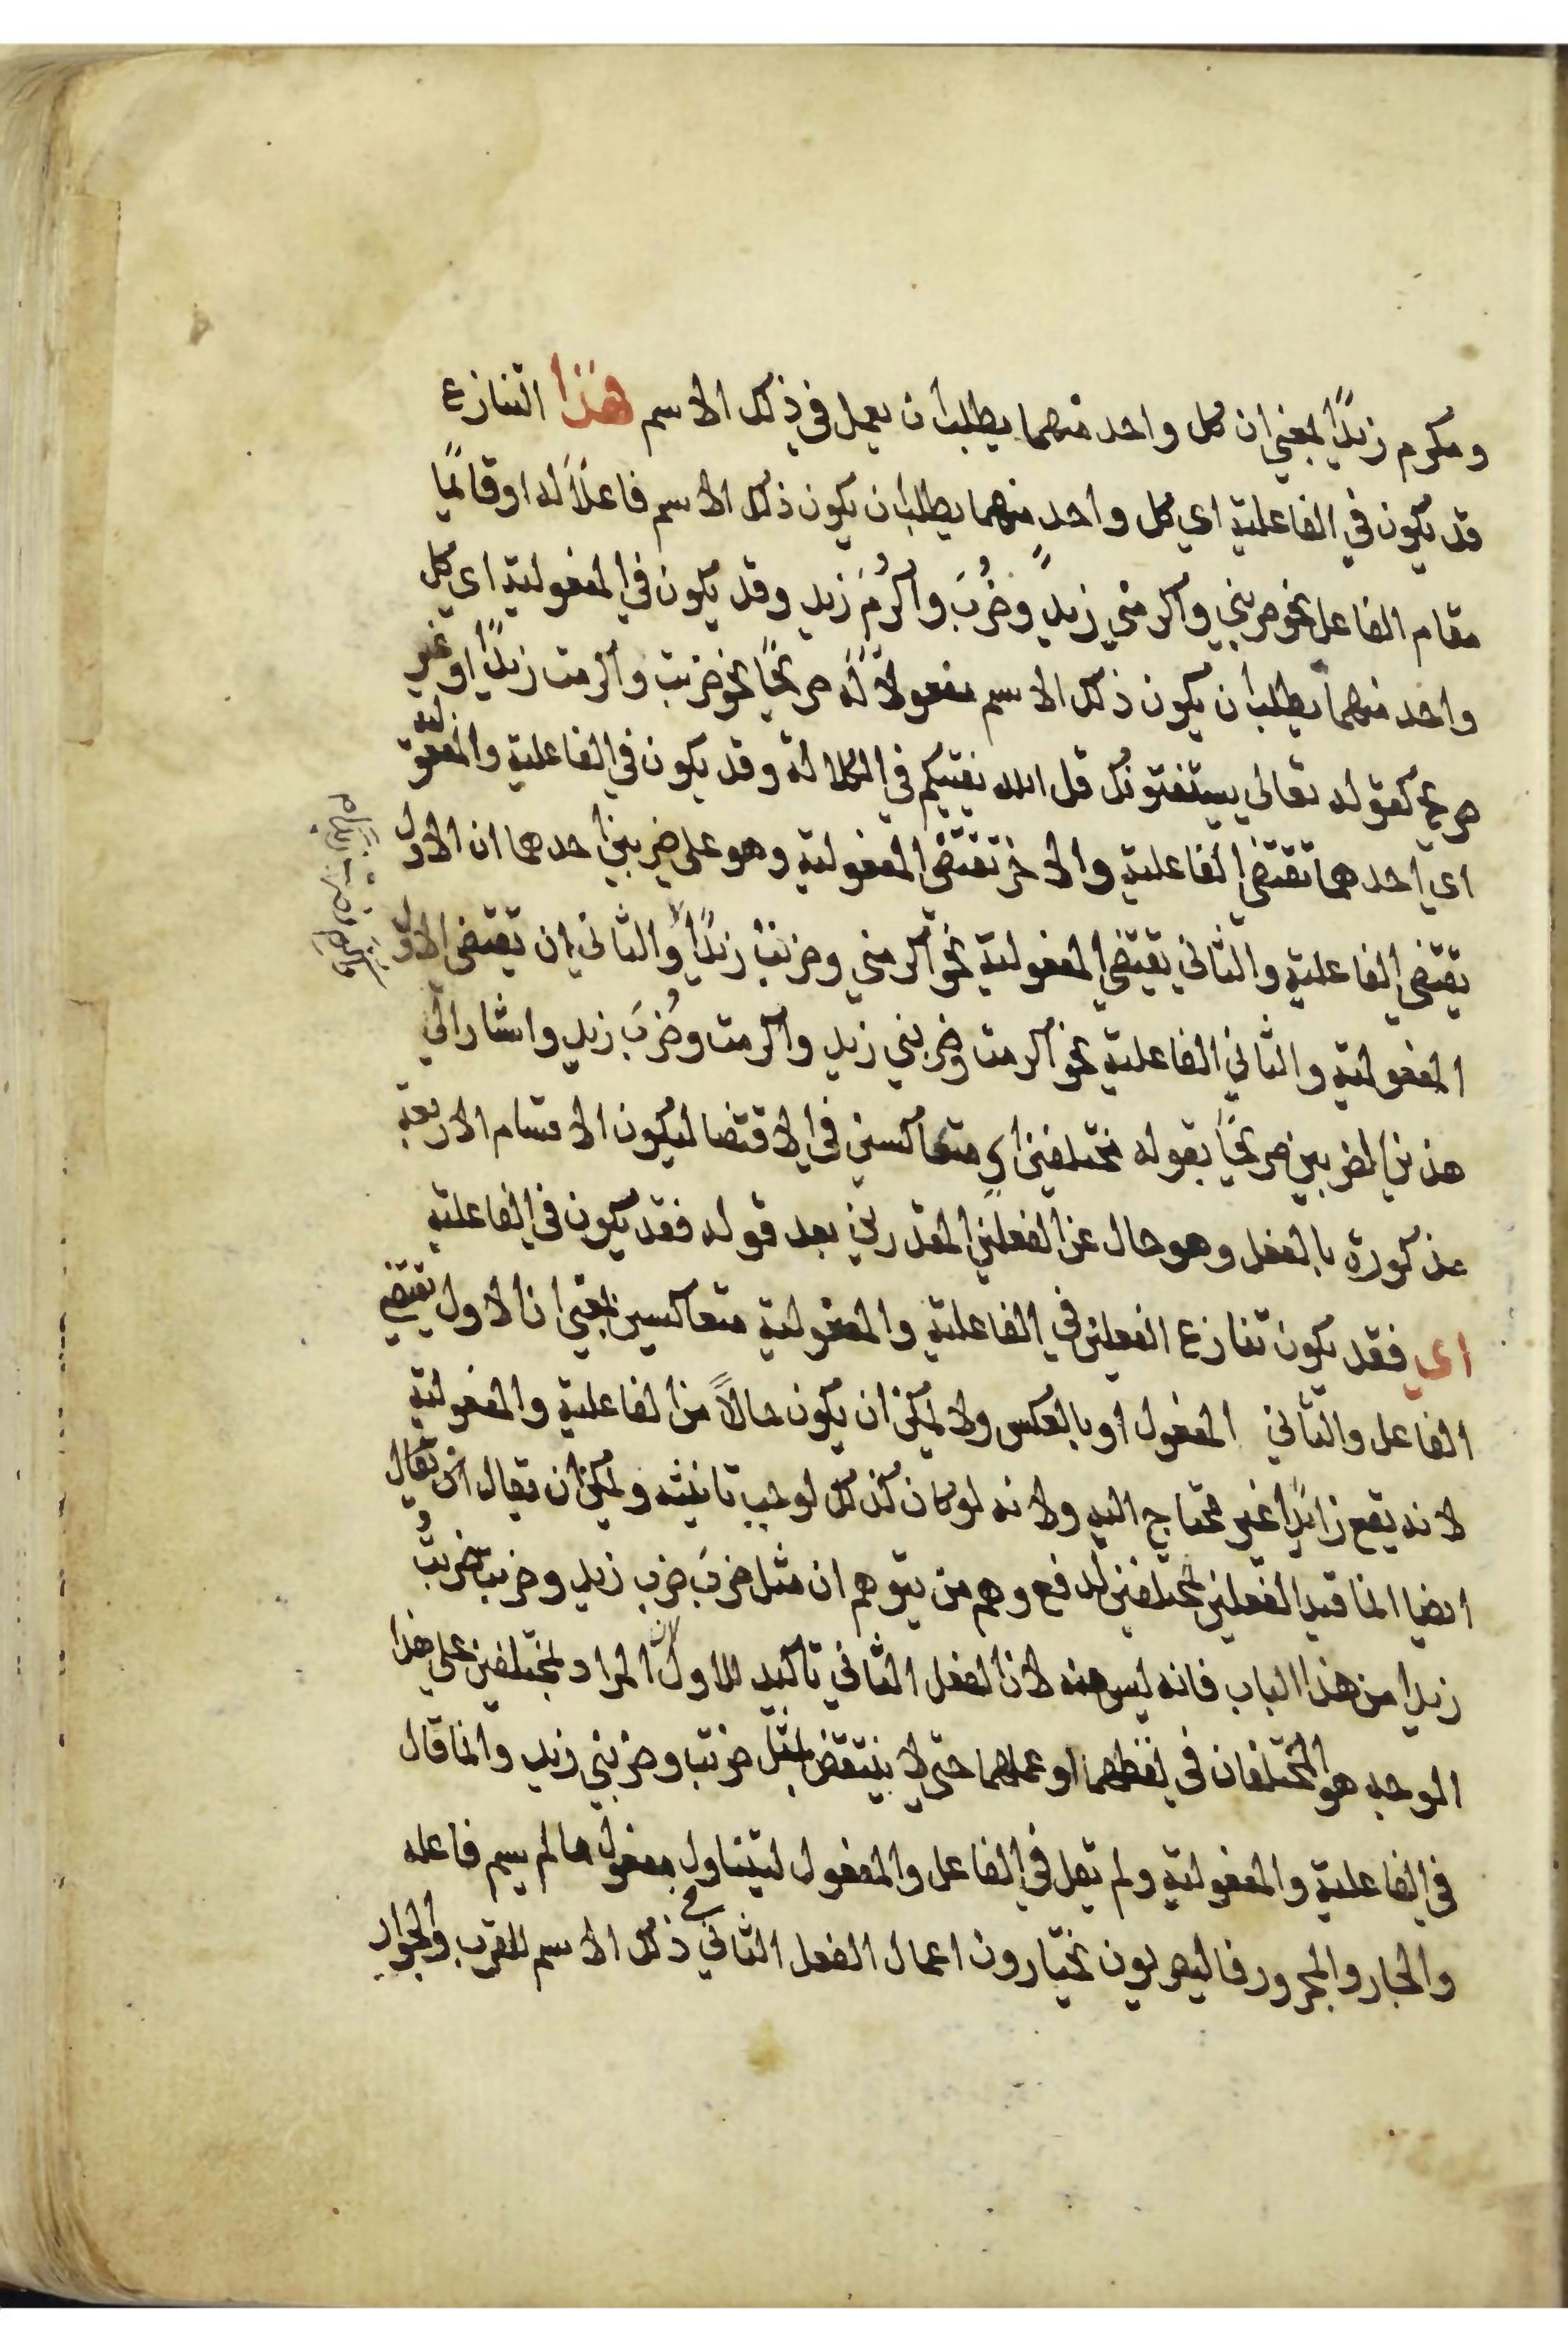 ومكرم زيدًا بمعني ان كل واحد منهما يطلب ان يعمل في ذلك الاسم هذا التنازع
قد يكون في الفاعلية اي كل واحد منهما يطلب ان يكون ذلك الاسم فاعلًا له او قائمًا
مقام الفاعل نحو ضربني واكرمني زيدٌ وضُرِبَ واُكرِمَ زيد وقد يكون في المفعولية اي كل
واحد منهما يطلب ان يكون ذلك الاسم مفعولًا له صريحًا نحو ضربت واكرمت زيدًا او غير
صريح كقوله تعالى يستفتونك قل الله يفتيكم في الكلالة وقد يكون في الفاعلية والمفعولية
اي احدهما تقتضي الفاعلية والاخر تقتضي المفعولية وهو علي ضربين احدهما ان الاول
يقتضي الفاعلية والثاني يقتضي المفعولية نحو اكرمني وضربت زيدًا والثاني ان يقتضي الاول
المفعولية والثاني الفاعلية نحو اكرمت وضربني زيد واكرمت وضُرِبَ زيد واشار الي
هذين الضربين صريحًا بقوله مختلفين اي متعاكسين في الاقتضا ليكون الاقسام الاربعة
مذكورة بالفعل وهو حال عن الفعلين المقدرين بعد قوله فقد يكون في الفاعلية
اي فقد يكون تنازع الفعلين في الفاعلية والمفعولية متعاكسين بمعني ان الاول يقتضي
الفاعل والثاني المفعول او بالعكس ولا يمكن ان يكون حالًا من الفاعلية والمفعولية
لانه يقع زائدًا غير محتاج اليه ولانه لو كان كذلك لوجب تانيثه ويمكن ان يقال ان يقال
ايضا انما قيد الفعلين بمختلفين لدفع وهم من يتوهم ان مثل ضرَبَ ضرب زيد وضربت ضربتُ
زيدا من هذا الباب فانه ليس منه لان الفعل الثاني تاكيد للاول لان المراد بمختلفين علي هذا
الوجه هو المختلفان في لفظهما او عملهما حتي لا ينتقض بمثل ضربت وضربني زيد وانما قال
في الفاعلية والمفعولية ولم يقل في الفاعل والمفعول ليتناول مفعول ما لم يسم فاعله
والجار والمجرور فالبصريون يختارون اعمال الفعل الثاني في ذلك الاسم للقرب والجوار